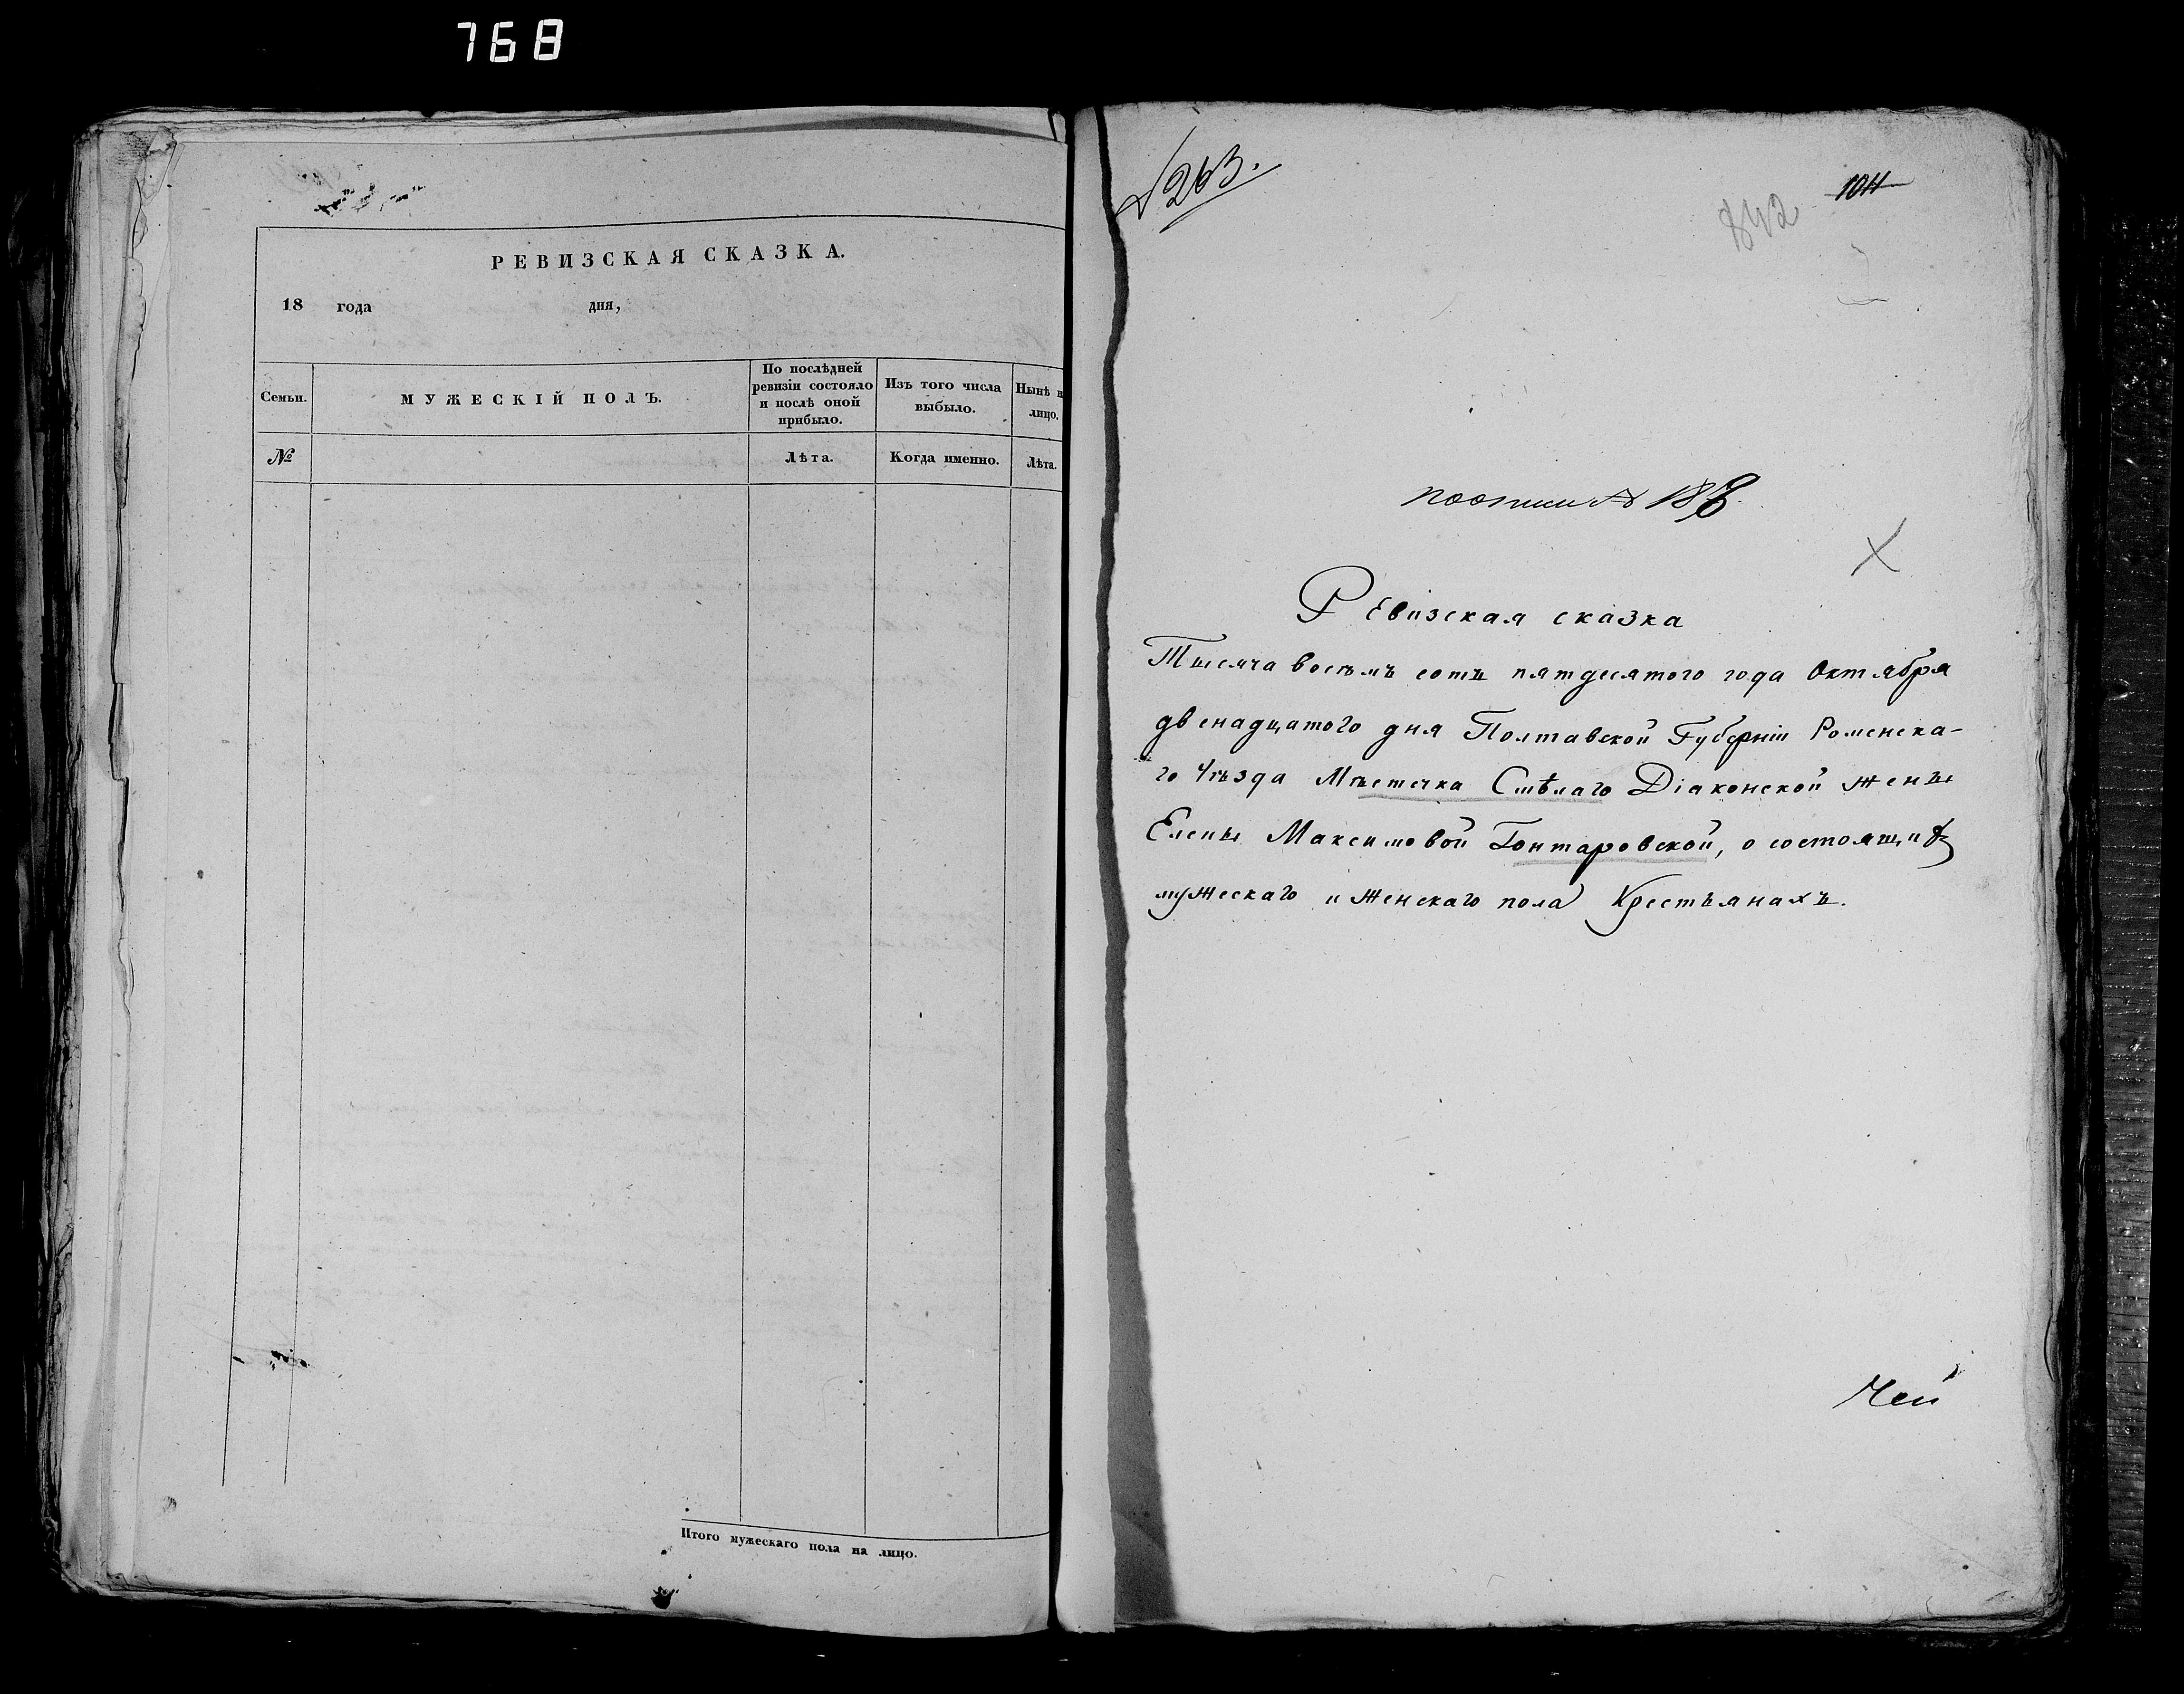 768
РЕВИЗСКАЯ СКАЗКА.
18 года дня,
Семьи.
МУЖЕСКІЙ ПОЛЪ.
По послѣдней
ревизіи состояло
и послѣ оной
прибыло.
Изъ того числа
выбыло.
Нынѣ н
лицо.
№
Лѣта.
Когда именно.
Лѣта.
Итого мужескаго пола на лицо.
№ 263.
1011
842
по описи № 188.
Ревизская сказка
Тысяча восемъ сотъ пятдесятого года Октября
двенадцатого дня Полтавской Губерніи Роменска-
го Уѣзда Мѣстечка Смѣлаго Діаконской жены
Елены Максимовой Гонтаровской, о состоящихъ
мужескаго и женскаго пола Крестьянахъ.